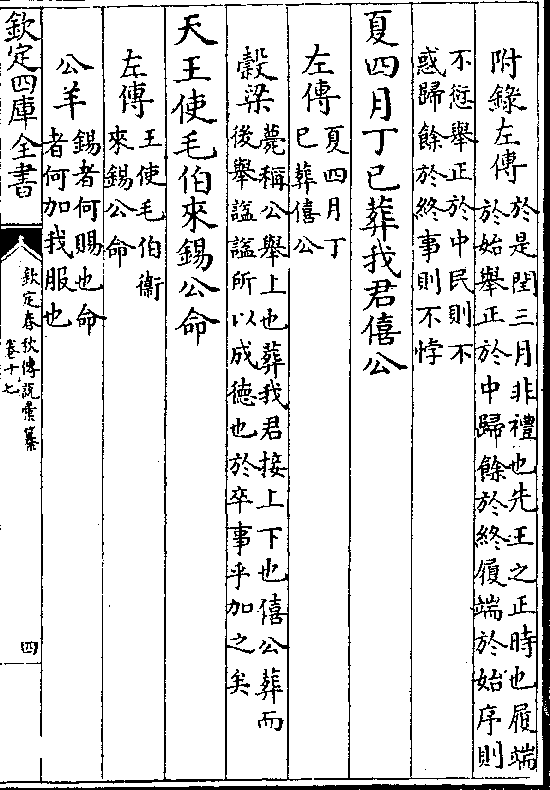 附錄左傳
於是閏三月非禮也先王之正時也履端
於始舉正於中歸餘於終履端於始序則
不愆舉正於中民則不
惑歸餘於終事則不悖
夏四月丁巳葬我君僖公
左傳
夏四月丁
巳葬僖公
穀梁
薨稱公舉上也葬我君接上下也僖公葬而
後舉諡諡所以成德也於卒事乎加之矣
天王使毛伯來錫公命
左傳
王使毛伯衞
來錫公命
公羊
錫者何賜也命
者何加我服也
欽定四庫全書
欽定春秋傳說彙纂
卷十七
四